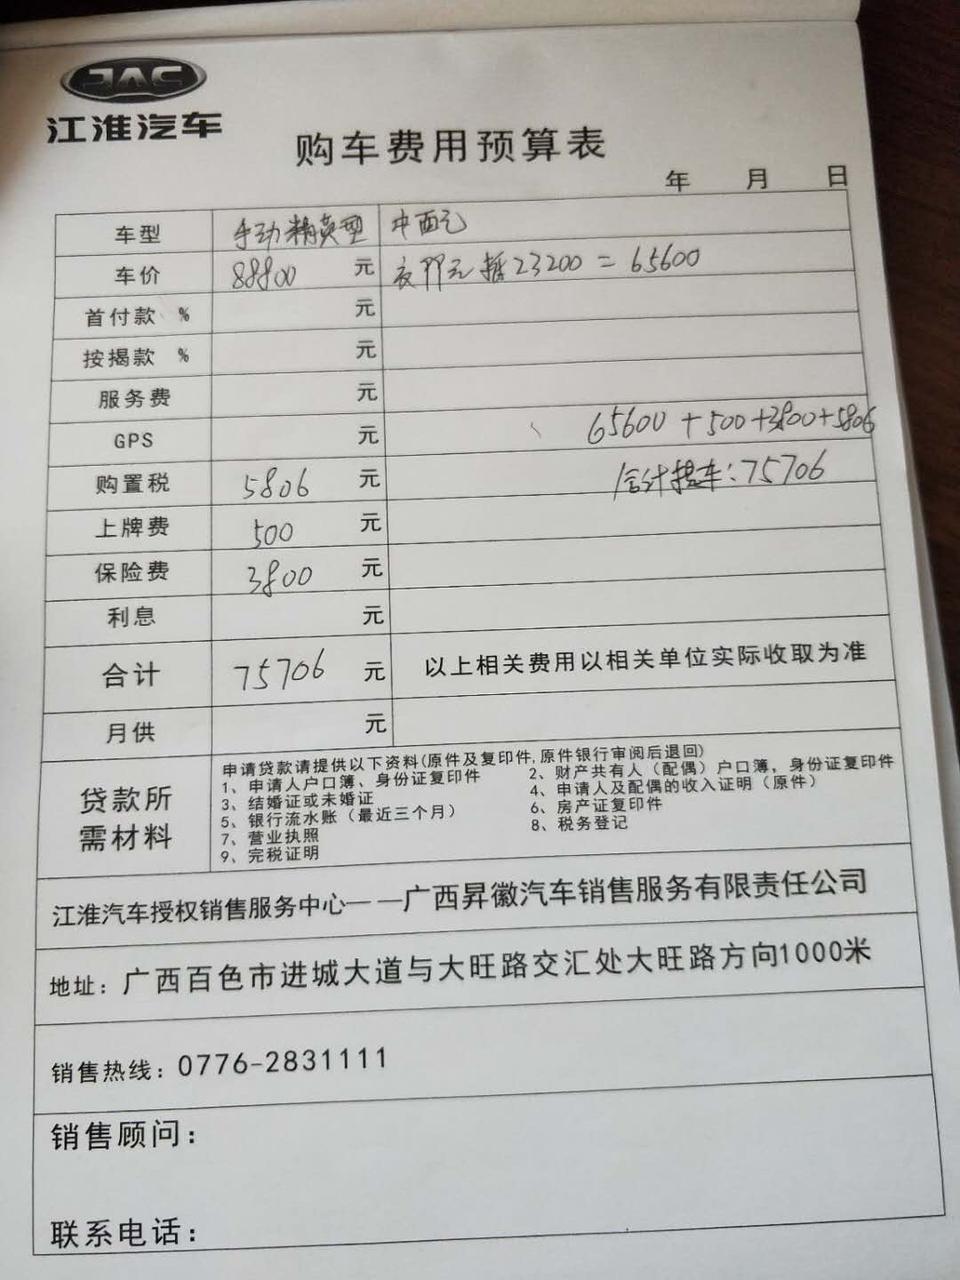 JAC
江淮汽车
购车费用预算表
年 月 日
车型 手动精英型
车价 88800 元 抵23200=65600
首付款 % 元
按揭款 % 元
服务费 元
GPS 元
65600+500+3800+5806
购置税 5806 元 合计提车:75706
上牌费 500 元
保险费 3800 元
利息 元
合计 75706 元 以上相关费用以相关单位实际收取为准
月供 元
贷款所需材料
申请贷款请提供以下资料(原件及复印件,原件银行审阅后退回)
1、申请人户口簿、身份证复印件 2、财产共有人(配偶)户口簿,身份证复印件
3、结婚证或未婚证 4、申请人及配偶的收入证明(原件)
5、银行流水账(最近三个月) 6、房产证复印件
7、营业执照 8、税务登记
9、完税证明
江淮汽车授权销售服务中心——广西昇徽汽车销售服务有限责任公司
地址:广西百色市进城大道与大旺路交汇处大旺路方向1000米
销售热线:0776-2831111
销售顾问:
联系电话: